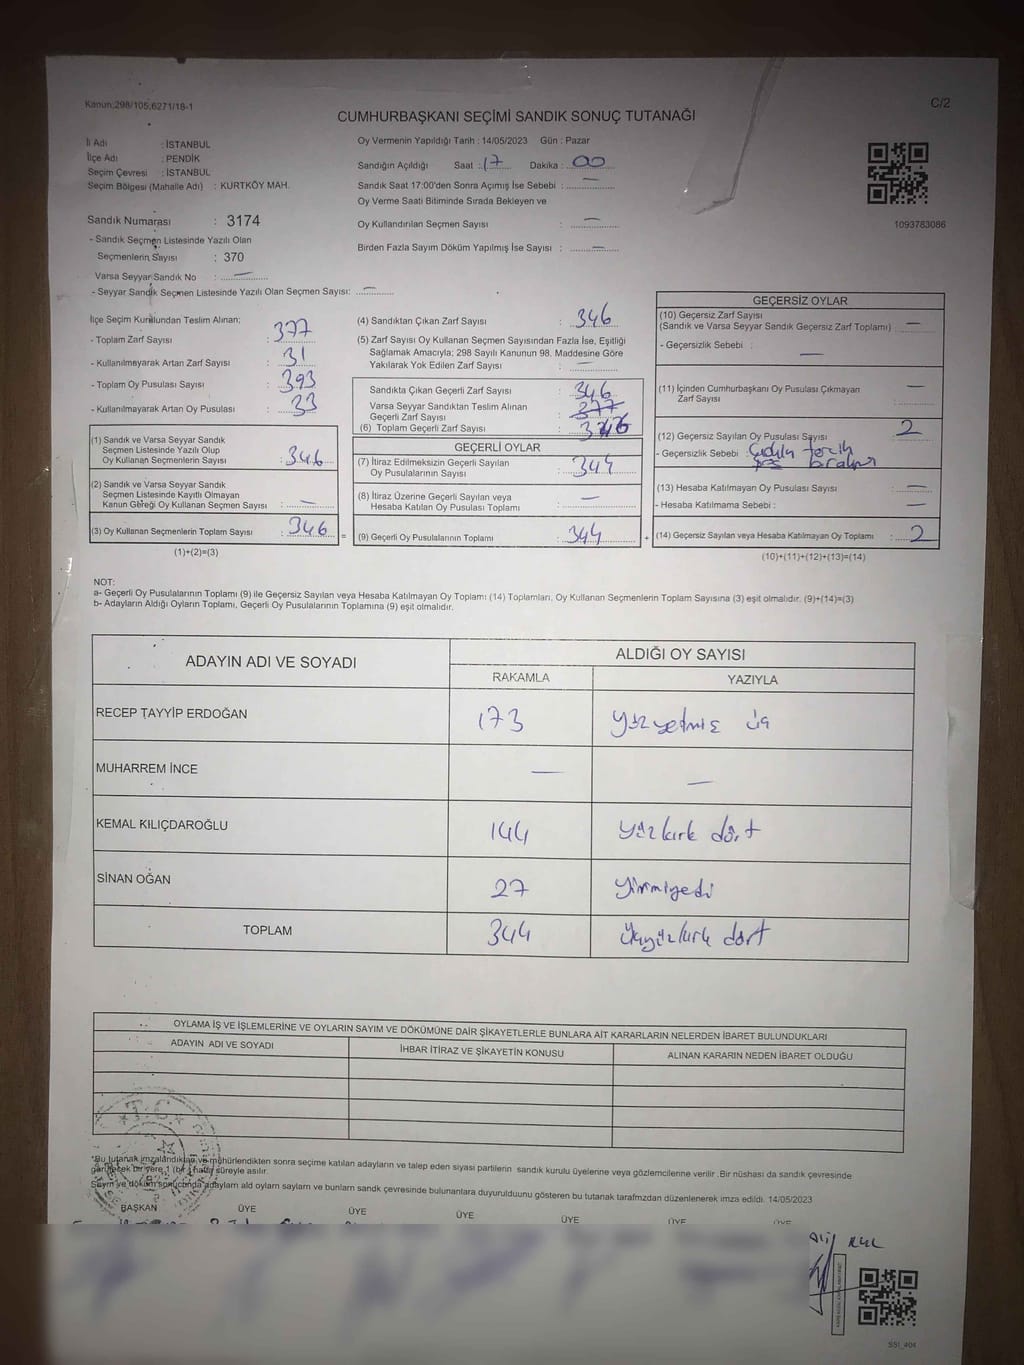 Kanun;298/105;6271/18-1
C/2
CUMHURBAŞKANI SEÇİMİ SANDIK SONUÇ TUTANAĞI
İl Adı : İSTANBUL
İlçe Adı : PENDİK
Seçim Çevresi : İSTANBUL
Seçim Bölgesi (Mahalle Adı) : KURTKÖY MAH.
Oy Vermenin Yapıldığı Tarih : 14/05/2023 Gün : Pazar
Sandığın Açıldığı Saat : 17 Dakika : 00
Sandık Saat 17:00'den Sonra Açımış İse Sebebi : —
Oy Verme Saati Bitiminde Sırada Bekleyen ve
Oy Kullandırılan Seçmen Sayısı : —
Birden Fazla Sayım Döküm Yapılmış İse Sayısı : —
1093783086
Sandık Numarası : 3174
- Sandık Seçmen Listesinde Yazılı Olan
Seçmenlerin Sayısı : 370
Varsa Seyyar Sandık No : —
- Seyyar Sandık Seçmen Listesinde Yazılı Olan Seçmen Sayısı: —
İlçe Seçim Kurulundan Teslim Alınan;
- Toplam Zarf Sayısı : 377
- Kullanılmeyarak Artan Zarf Sayısı : 31
- Toplam Oy Pusulası Sayısı : 393
- Kullanılmayarak Artan Oy Pusulası : 33
(1) Sandık ve Varsa Seyyar Sandık
Seçmen Listesinde Yazılı Olup
Oy Kullanan Seçmenlerin Sayısı : 346
(2) Sandık ve Varsa Seyyar Sandık
Seçmen Listesinde Kayıtlı Olmayan
Kanun Gereği Oy Kullanan Seçmen Sayısı : —
(3) Oy Kullanan Seçmenlerin Toplam Sayısı : 346
(1)+(2)=(3)
(4) Sandıktan Çıkan Zarf Sayısı : 346
(5) Zarf Sayısı Oy Kullanan Seçmen Sayısından Fazla İse, Eşitliği
Sağlamak Amacıyla; 298 Sayılı Kanunun 98. Maddesine Göre
Yakılarak Yok Edilen Zarf Sayısı : —
Sandıkta Çıkan Geçerli Zarf Sayısı : 346
Varsa Seyyar Sandıktan Teslim Alınan
Geçerli Zarf Sayısı : 377
(6) Toplam Geçerli Zarf Sayısı : 346
GEÇERLİ OYLAR
(7) İtiraz Edilmeksizin Geçerli Sayılan
Oy Pusulalarının Sayısı : 344
(8) İtiraz Üzerine Geçerli Sayılan veya
Hesaba Katılan Oy Pusulası Toplamı : —
= (9) Geçerli Oy Pusulalarının Toplamı : 344
GEÇERSİZ OYLAR
(10) Geçersiz Zarf Sayısı
(Sandık ve Varsa Seyyar Sandık Geçersiz Zarf Toplamı) : —
- Geçersizlik Sebebi : —
(11) İçinden Cumhurbaşkanı Oy Pusulası Çıkmayan
Zarf Sayısı : —
(12) Geçersiz Sayılan Oy Pusulası Sayısı : 2
- Geçersizlik Sebebi :
(13) Hesaba Katılmayan Oy Pusulası Sayısı : —
- Hesaba Katılmama Sebebi : —
+ (14) Geçersiz Sayılan veya Hesaba Katılmayan Oy Toplamı : 2
(10)+(11)+(12)+(13)=(14)
NOT:
a- Geçerli Oy Pusulalarının Toplamı (9) ile Geçersiz Sayılan veya Hesaba Katılmayan Oy Toplamı (14) Toplamları, Oy Kullanan Seçmenlerin Toplam Sayısına (3) eşit olmalıdır. (9)+(14)=(3)
b- Adayların Aldığı Oyların Toplamı, Geçerli Oy Pusulalarının Toplamına (9) eşit olmalıdır.
ADAYIN ADI VE SOYADI
ALDIĞI OY SAYISI
RAKAMLA YAZIYLA
RECEP TAYYİP ERDOĞAN 173 yüzyetmiş üç
MUHARREM İNCE — —
KEMAL KILIÇDAROĞLU 144 yüzkırk dört
SİNAN OĞAN 27 yirmiyedi
TOPLAM 344 üçyüzkırk dört
OYLAMA İŞ VE İŞLEMLERİNE VE OYLARIN SAYIM VE DÖKÜMÜNE DAİR ŞİKAYETLERLE BUNLARA AİT KARARLARIN NELERDEN İBARET BULUNDUKLARI
ADAYIN ADI VE SOYADI İHBAR İTİRAZ VE ŞİKAYETİN KONUSU ALINAN KARARIN NEDEN İBARET OLDUĞU
T.C.
*Bu tutanak imzalandıktan ve mühürlendikten sonra seçime katılan adayların ve talep eden siyasi partilerin sandık kurulu üyelerine veya gözlemcilerine verilir .Bir nüshası da sandık çevresinde
görülecek bir yere 1 (bir) hafta süreyle asılır.
Sayım ve döküm sonucunda adayların aldı oyların sayların ve bunların sandık çevresinde bulunanlara duyurulduunu gösteren bu tutanak tarafmzdan düzenlenerek imza edildi. 14/05/2023
BAŞKAN ÜYE ÜYE ÜYE ÜYE ÜYE ÜYE
SSI_404